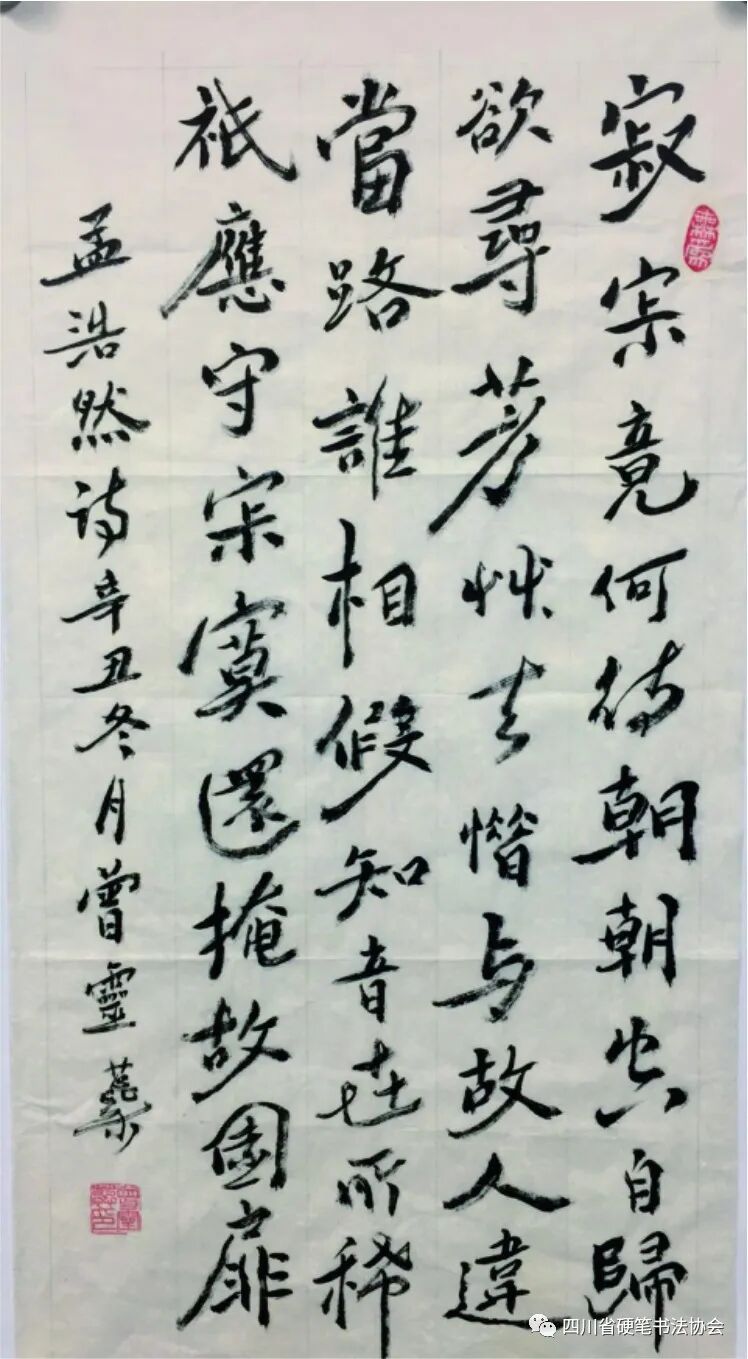 寂寂竟何待朝朝空自歸
欲尋芳艸去惜与故人違
當路誰相假知音世所稀
祇應守寂寞還掩故園扉
孟浩然诗辛丑冬月曾靈
四川省硬笔书法协会